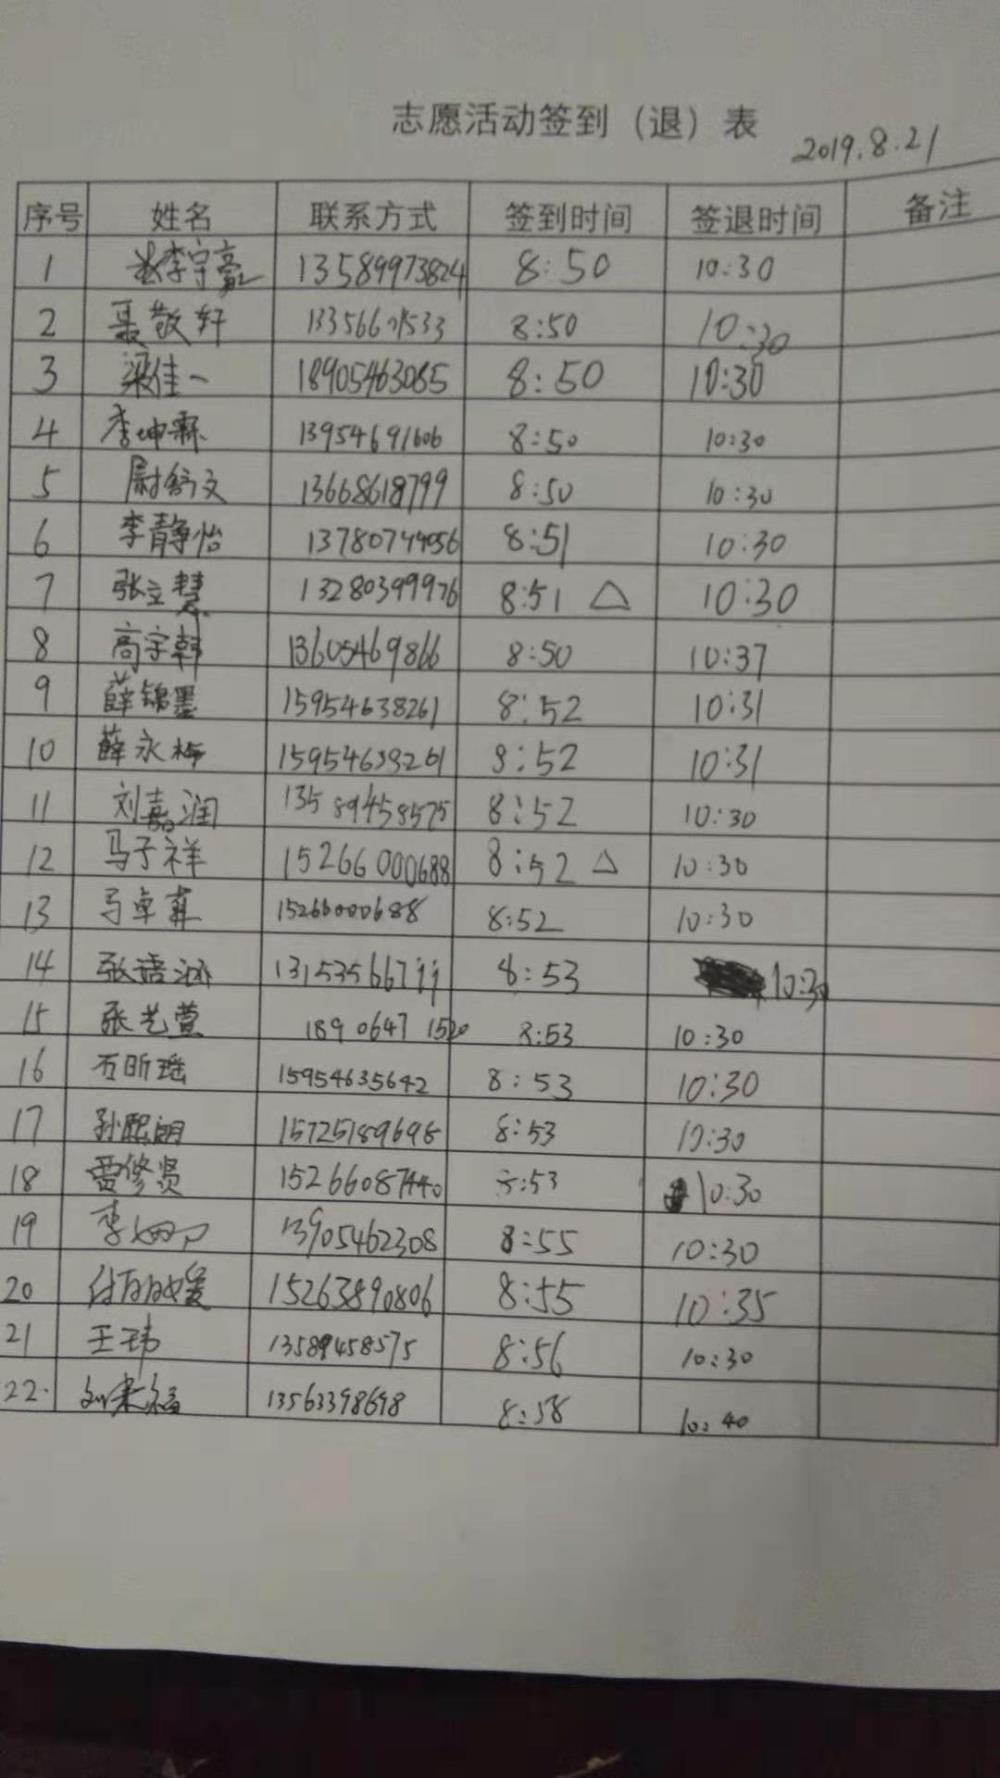 志愿活动签到（退）表
2019.8.21
序号 姓名 联系方式 签到时间 签退时间 备注
1 李宇豪 13589973824 8:50 10:30
2 聂敬轩 1335667533 8:50 10:30
3 梁佳一 18905463085 8:50 10:30
4 李坤霖 13954691606 8:50 10:30
5 尉舒文 13668618799 8:50 10:30
6 李静怡 13780744056 8:51 10:30
7 张立慧 13280399976 8:51 △ 10:30
8 高宇韩 13605469866 8:50 10:37
9 薛锦墨 15954638261 8:52 10:31
10 薛永梅 15954638261 8:52 10:31
11 刘嘉润 13589458575 8:52 10:30
12 马子祥 15266000688 8:52 △ 10:30
13 马卓 15266000688 8:52 10:30
14 张 涵 131535667 8:53 10:30
15 张艺萱 18906471520 8:53 10:30
16 石昕瑶 15954635642 8:53 10:30
17 孙熙朗 15725189698 8:53 10:30
18 贾修贤 15266087440 8:53 10:30
19 李 13905462308 8:55 10:30
20 15263890806 8:55 10:35
21 王玮 13589458575 8:56 10:30
22. 刘 13563398698 8:58 10:40